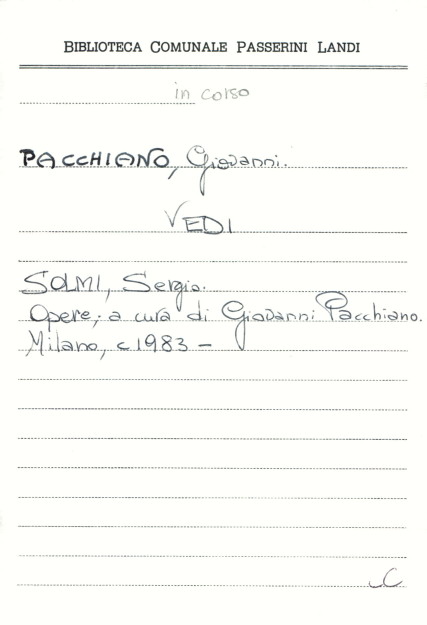 BIBLIOTECA COMUNALE PASSERINI LANDI
in corso
PACCHIANO, Giovanni.
VEDI
SOLMI, Sergio.
Opere; a cura di Giovanni Pacchiano.
Milano, c1983 -
C